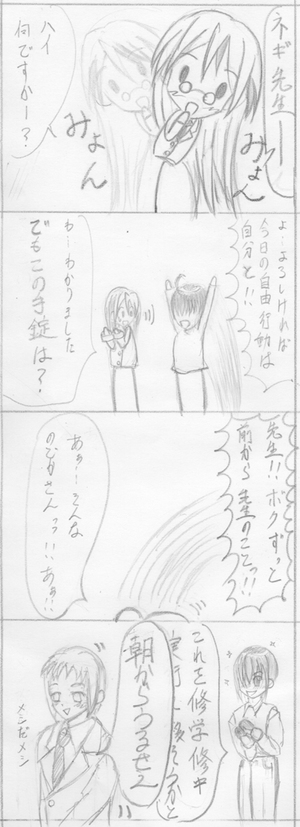 ネギ先生ー
みょん
みょん
ハイ
何ですかー?
よ…よろしければ
今日の自由行動は
自分と!!
わ…わかりました
でもこの手錠は?
先生!!ボクずっと
前から先生のことっ!!
あぁ…そんな
のどかさんっ!!あぁ!!
これを修学
朝からうるせえ
メシだメシ